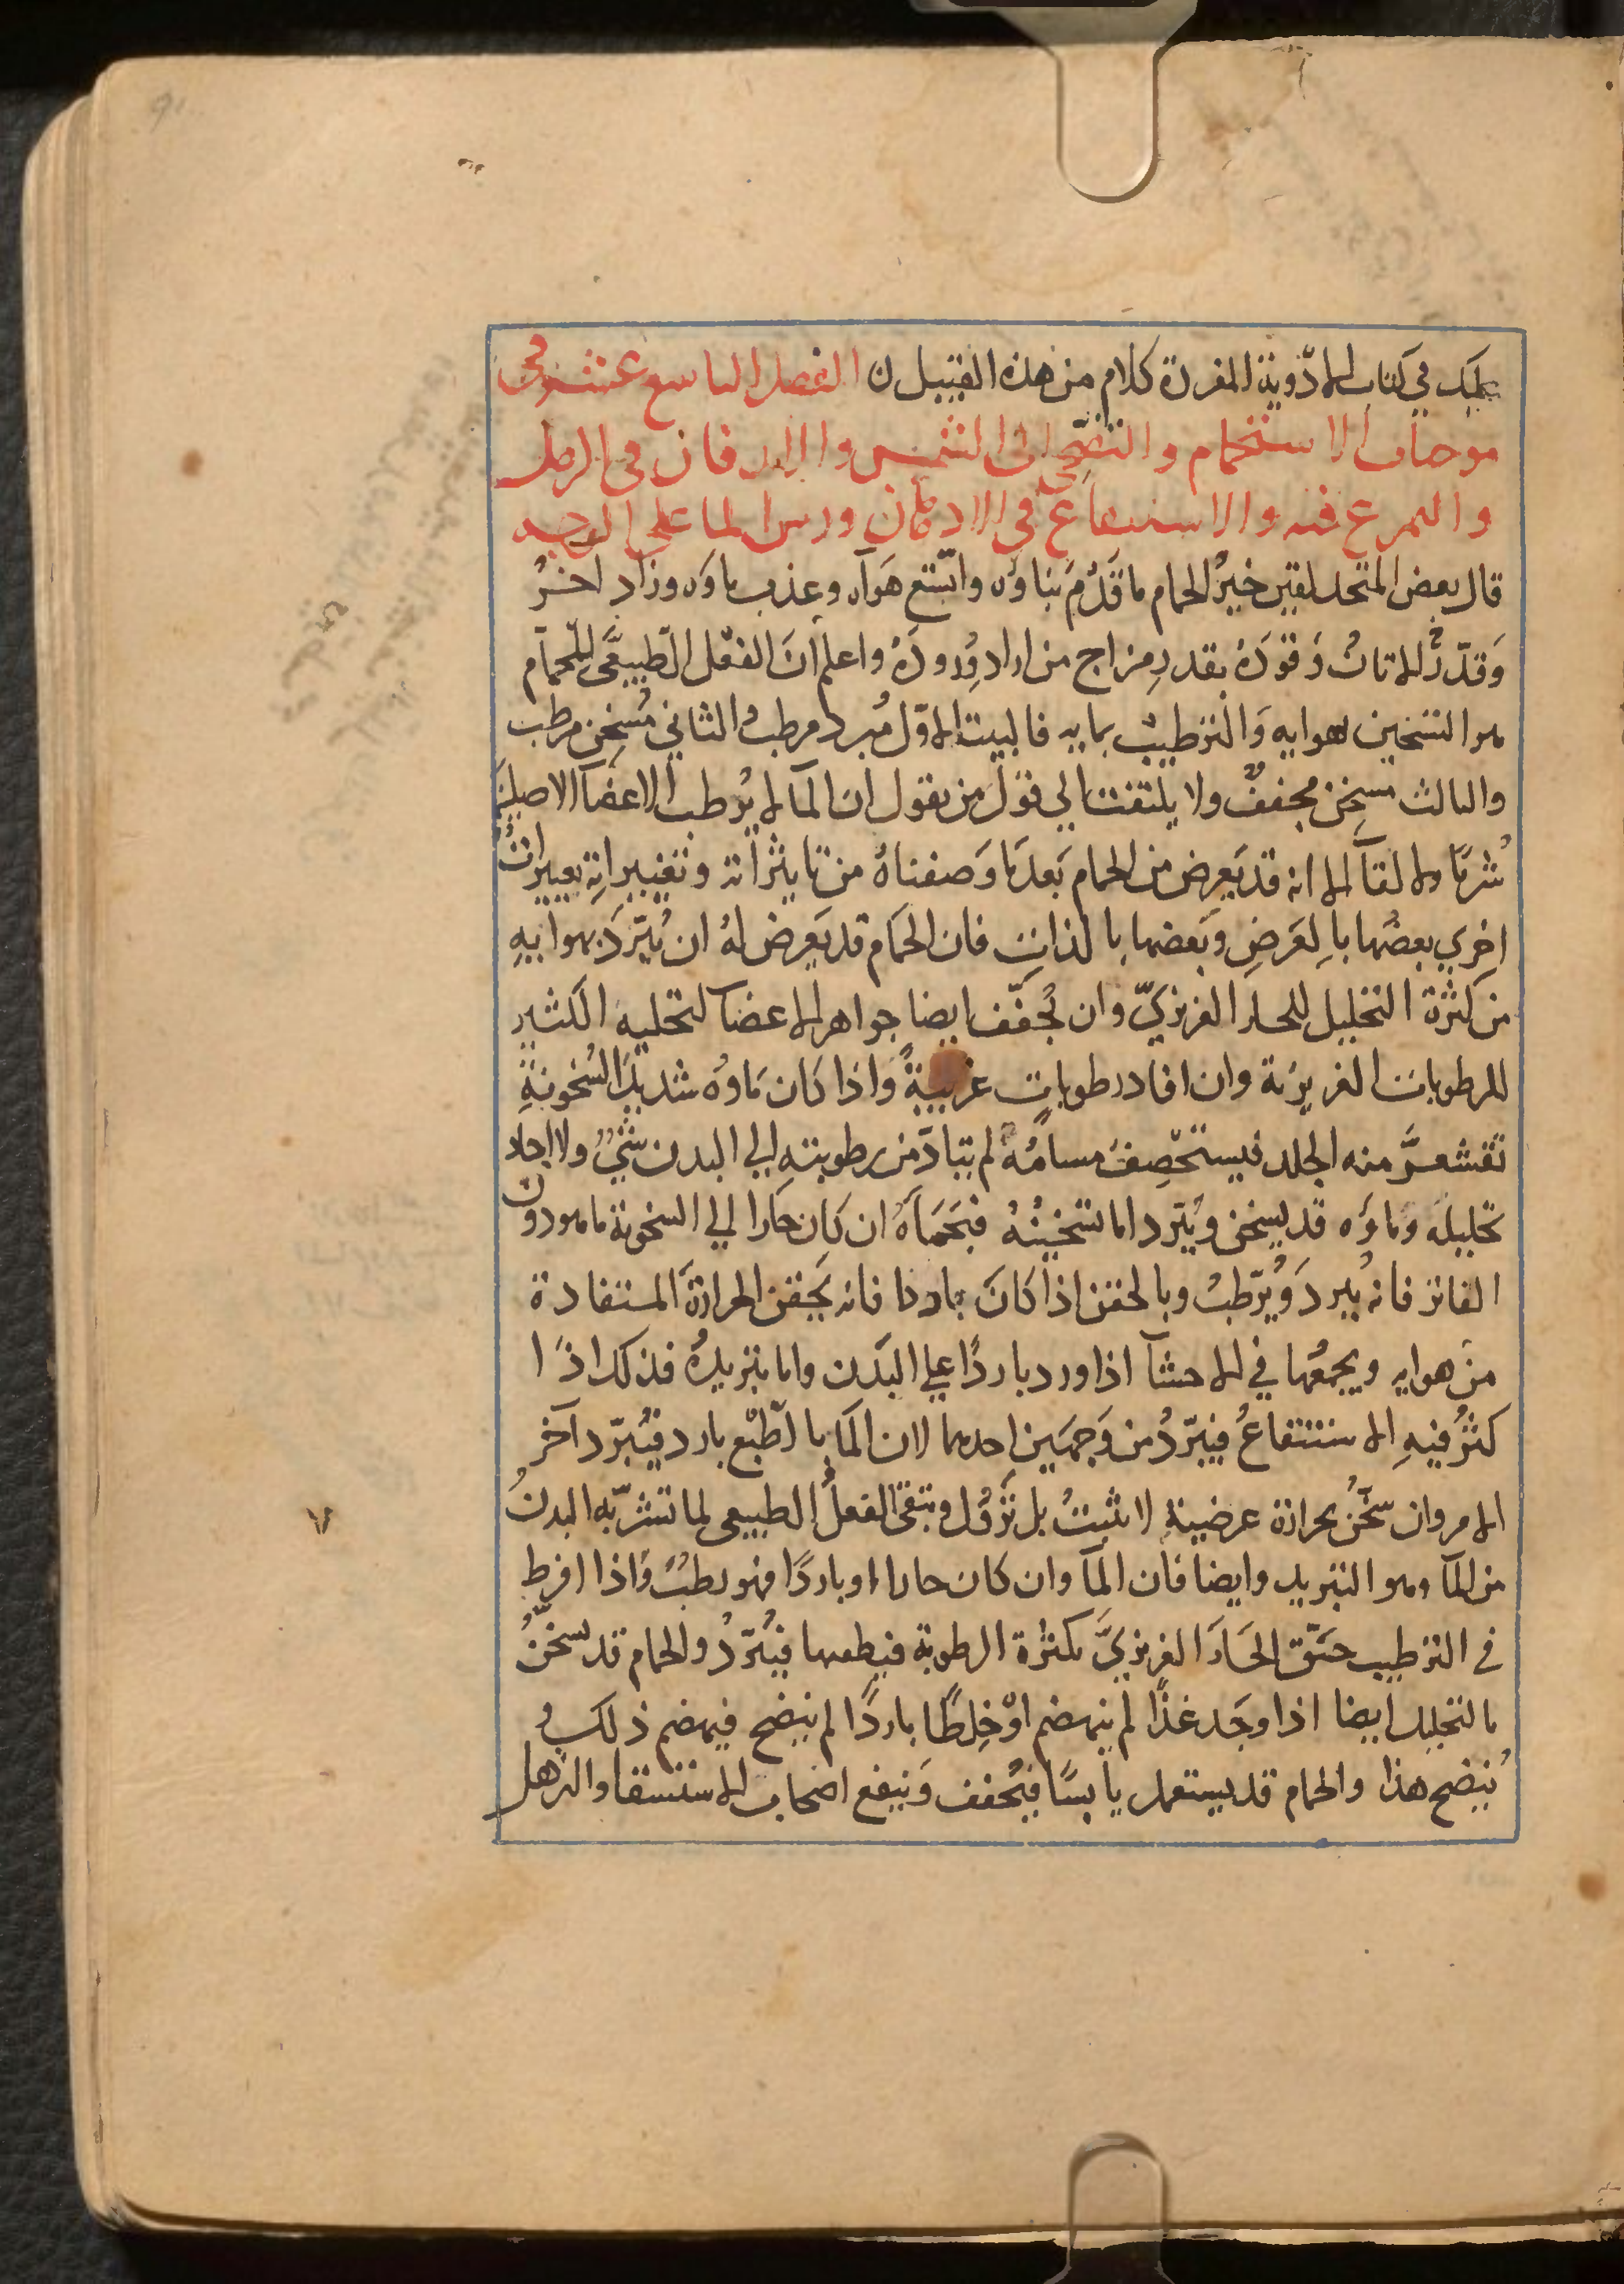 عليك في كتاب الادوية المفردة كلام من هذه القبيل ن الفصل التاسع عشر في
موجبات الاستحمام والتضحي الى الشمس والاندفان في الرمل
والتمرغ فيه والاستنقاع في الادهان ورس الما على الوجه
قال بعض المتحدلقين خير الحمام ما قَدُمَ بناوه واتسع هوآه وعذب ماوه وزاد اخرُ
وَقدّر الاتان وَقودَهُ بقدرِ مزاج من اراد وُرودَهُ واعلم انَ الفعل الطبيعيَّ للحمام
هو التسخين بهوايه وَالترطيبُ بمايه فالبيت الاوّل مُبرد مرطب والثاني مُسخِن مرطب
والثالث مسخِن مجففٌ ولا يلتفت الي قول من يقول ان المآ لا يُرطب الاعضآ الاصليَة
شربًا ولا لقآ الا انه قد يَعرِض من الحمام بَعد مَا وَصفناهُ من تاثيراته وتغييراتِهِ تغييراتٌ
اخري بعضُها باِلعَرضِ وَبَعضها بالذاتِ فان الحمَام قد يَعرِض لهُ ان يُبرّدَ بهوايِهِ
من كثرة التحليل للحار الغريزيّ وان يُجفّف ايضا جواهر الاعضا لتحليه الكثير
للرطوبات الغريزية وان افاد رطوباتٍ غريبةً واذا كان مَاوُه شديدَ السُخونةِ
تقشعرَّ منه الجلد فيستحصِفَ مسامُهُ لم يتادَّ من رطوبتهِ الي البدن شيٌ ولا اجاد
تحليله وماوَه قد يسخن ويُبرّد اما تسخينُهُ فبحَمَاهُ ان كان حارا الي السخونة ما هو دون
الفاتر فانه يُبردَ ويُرّطبُ وبالحقن اذا كانَ باردا فانه يَحقن الحرارةَ المستفادة
من هوايه ويجمعُها في الاحشآ اذا ورد باردًا علي البدن واما بتبريدُهُ فذلك اذًا
كثُر فيهِ الاستنقاعُ فيبرّدُ من وَجهين احدهما لان المَا بالطبْع بارد فيُبرّد آخر
الامر وان سَخّنُ بحرارة عرضية لا تثبتُ بل تَزُول ويبَقى الفعلُ الطبيعى لما تشرّبَه البدنُ
من المآ وهو التبريد وايضا فان المَآ وان كان حارا او باردًا فهو رطبٌ وَاذا افرط
في الترطيب حَقَّق الحَارَ الغريزيَّ بكثرة الرطوبة فيطفيها فيُبَرّدُ والحمام قد يسخّنُ
بالتحليل ايضا اذا وجَد غذًا لم ينهضم اوْ خِلطًا باردًا لم ينضج فيهضم ذلك و
يُنضج هذا والحمام قد يستعمل يابسًا فيُجفف وَينفع اصحاب الاستسقا والترهل